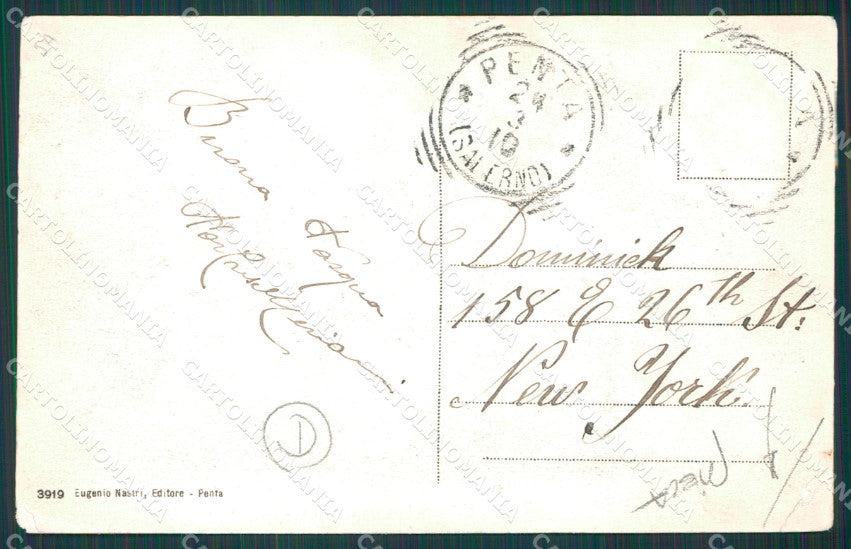 Buona Pasqua
PENTA
24
3
10
(SALERNO)
Dominick
158 E 26th St.
New York.
1
3919 Eugenio Nastri, Editore - Penta
CARTOLINOMANIA